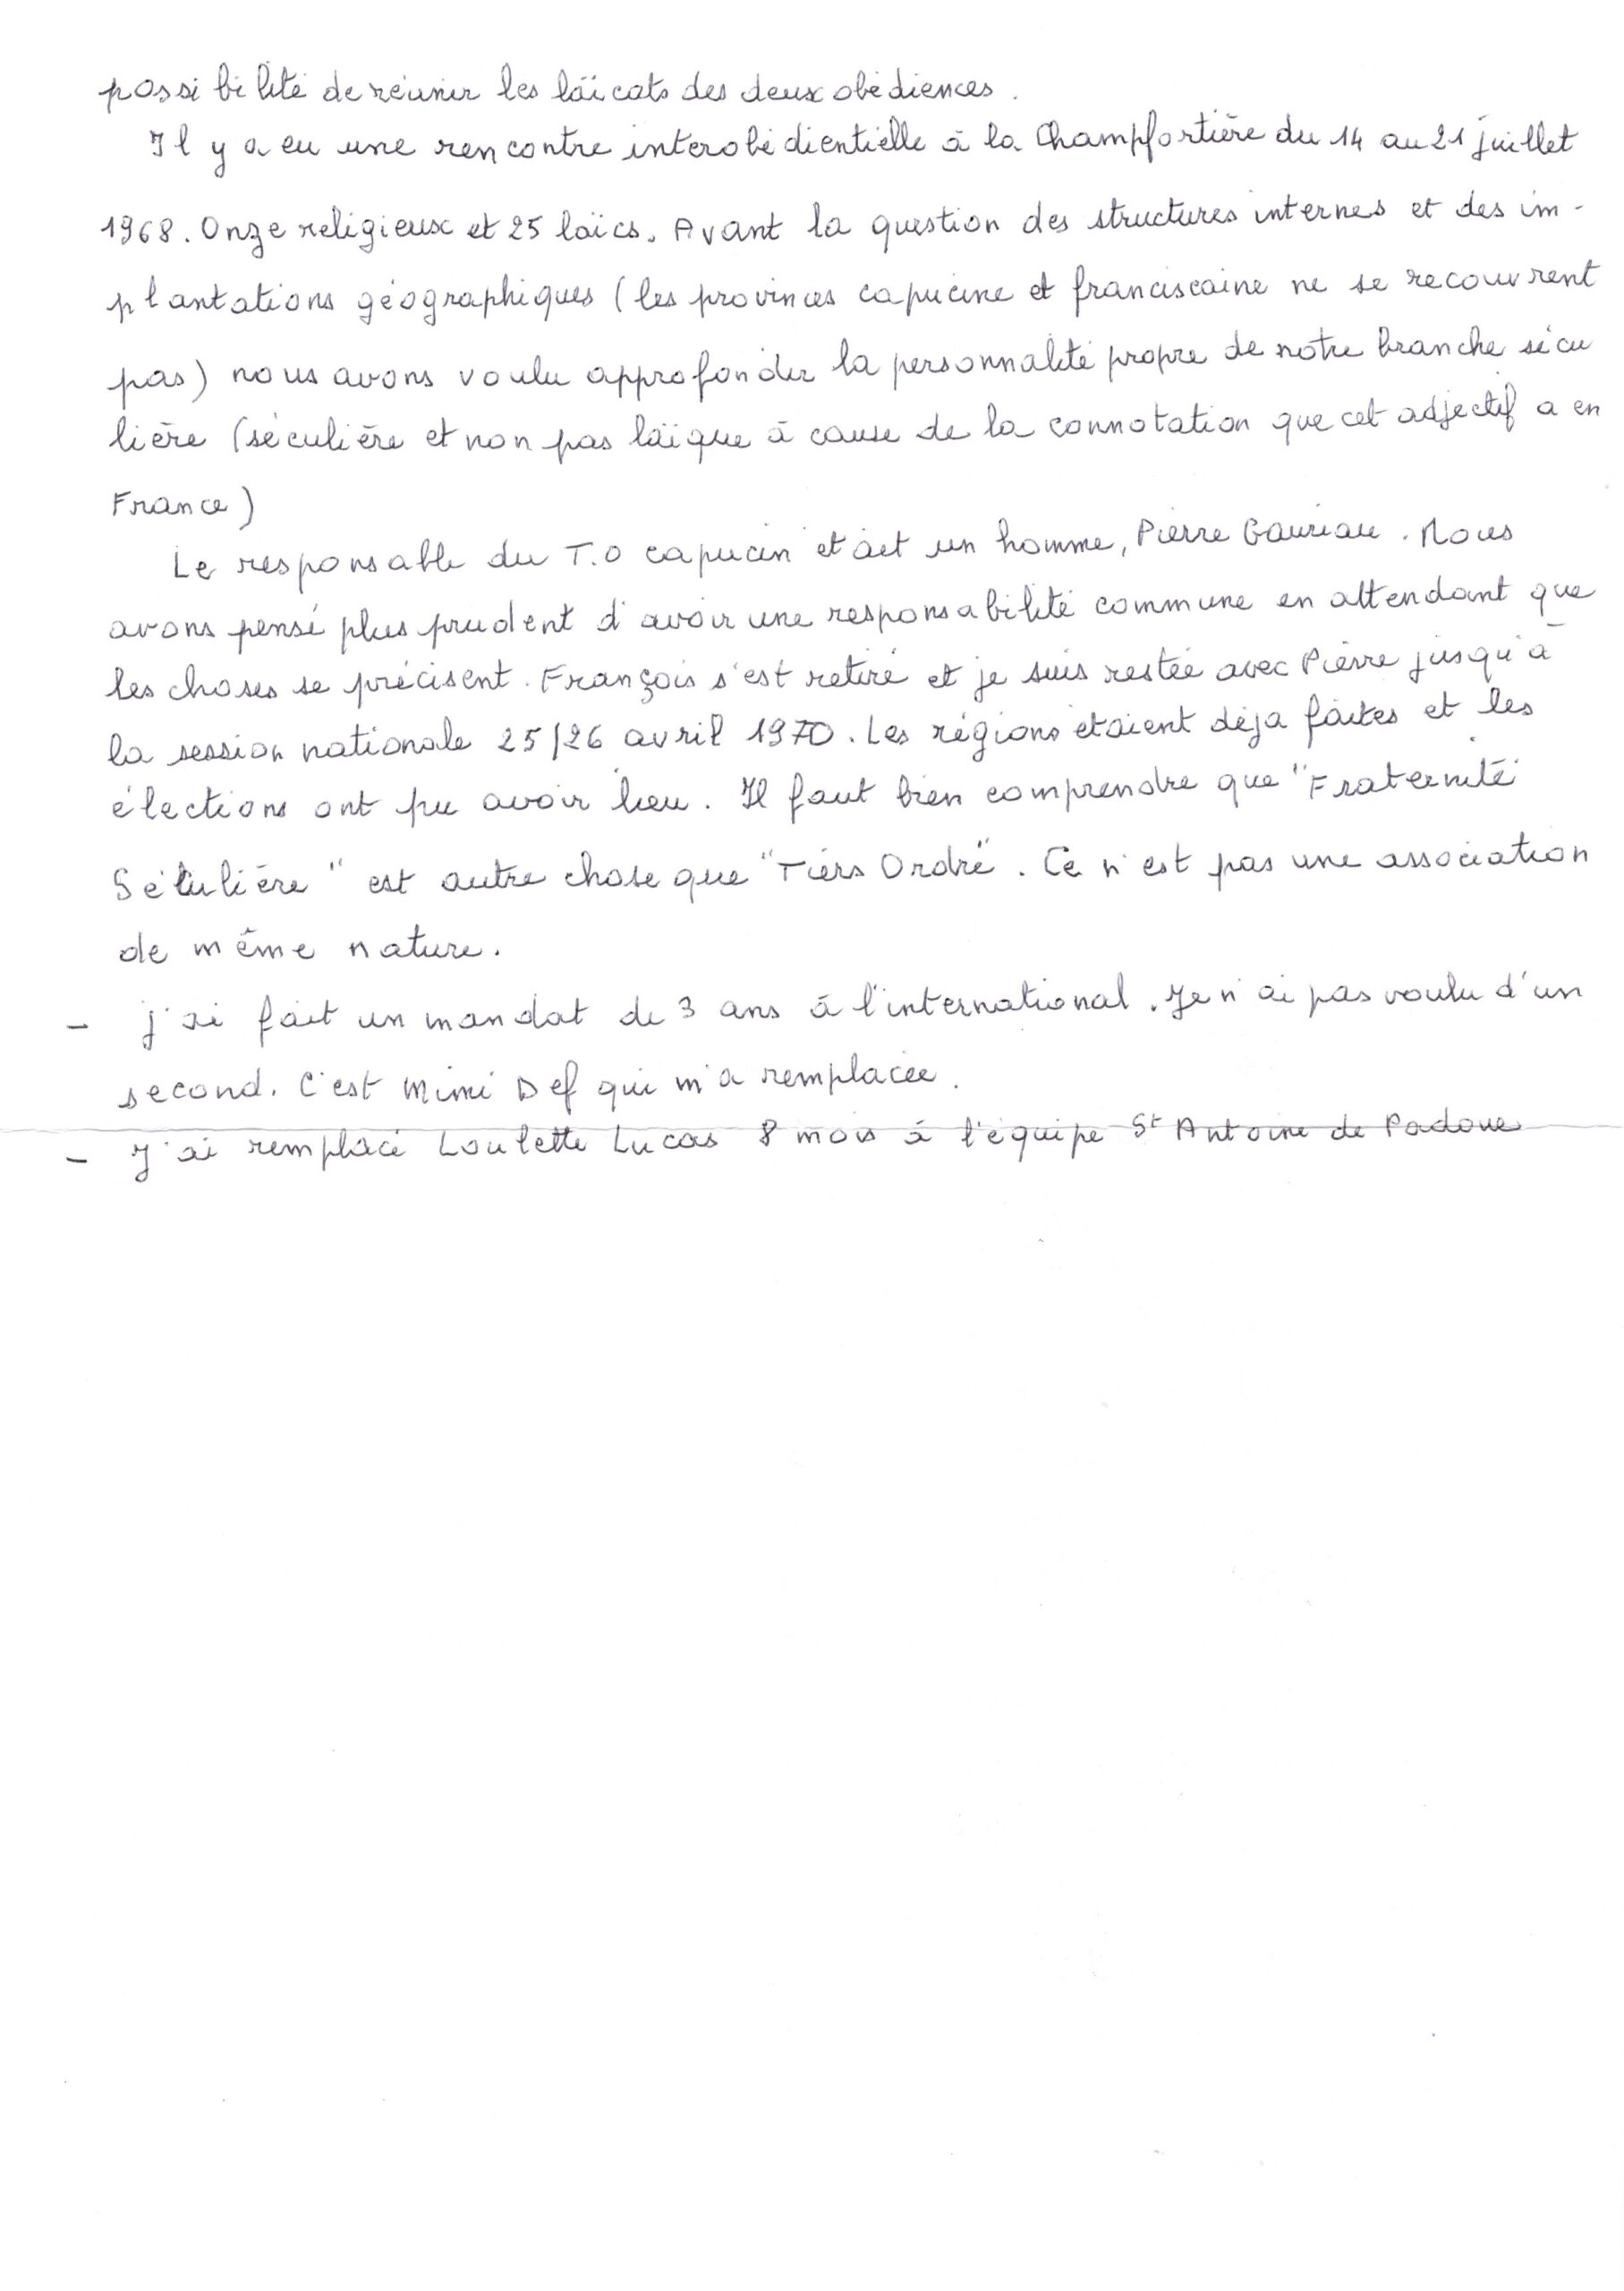 possibilité de réunir les laïcats des deux obédiences.
Il y a eu une rencontre interobédientielle à la Champfortière du 14 au 21 juillet
1968. Onze religieux et 25 laïcs. Avant la question des structures internes et des im-
plantations géographiques (les provinces capucine et franciscaine ne se recouvrent
pas) nous avons voulu approfondir la personnalité propre de notre branche sécu
lière (séculière et non pas laïque à cause de la connotation que cet adjectif a en
France)
Le responsable du T.O capucin était un homme, Pierre Gauriau. Nous
avons pensé plus prudent d'avoir une responsabilité commune en attendant que
les choses se précisent. François s'est retiré et je suis restée avec Pierre jusqu'à
la session nationale 25/26 avril 1970. Les régions étaient déja faites et les
élections ont pu avoir lieu. Il faut bien comprendre que "Fraternité
Séculière" est autre chose que "Tiers Ordre". Ce n'est pas une association
de même nature.
- j'ai fait un mandat de 3 ans à l'international. Je n'ai pas voulu d'un
second. C'est Mimi Def qui m'a remplacée.
- J'ai remplacé Loulette Lucas 8 mois à l'équipe St Antoine de Padoue